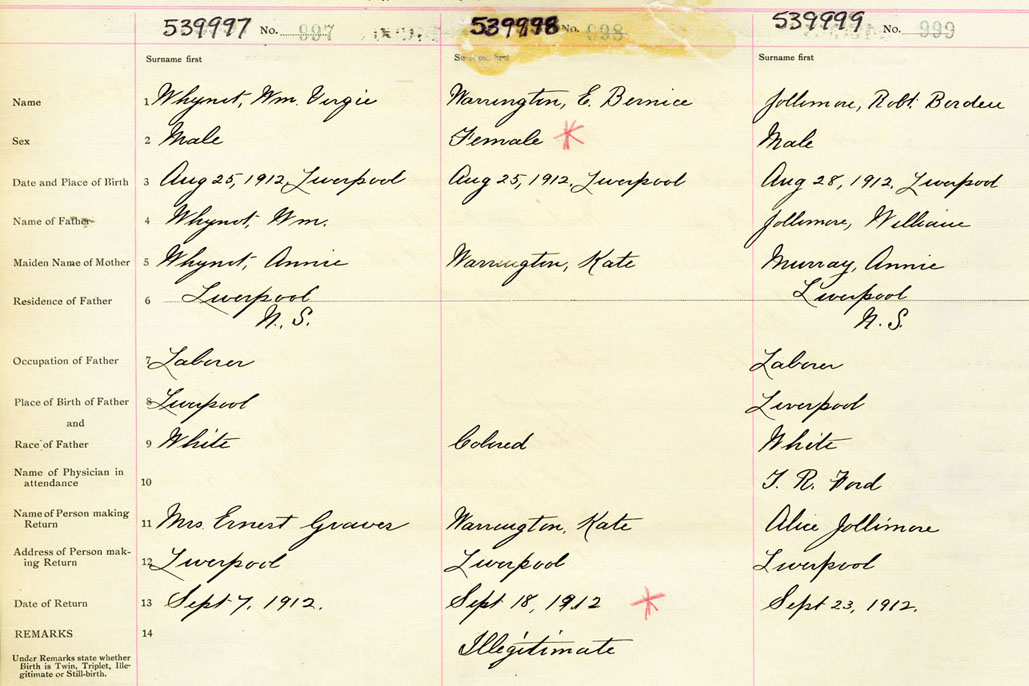 539997 No. 997 539998 No. 998 539999 No. 999
Surname first Surname first Surname first
Name 1 Whynot, Wm. Virgie Warrington, E. Bernice Jollimore, Robt. Borden
Sex 2 Male Female * Male
Date and Place of Birth 3 Aug 25, 1912, Liverpool Aug 25, 1912. Liverpool Aug 28, 1912. Liverpool
Name of Father 4 Whynot, Wm. Jollimore, William
Maiden Name of Mother 5 Whynot, Annie Warrington, Kate Murray, Annie
Residence of Father 6 Liverpool Liverpool
N. S. N. S.
Occupation of Father 7 Laborer Laborer
Place of Birth of Father 8 Liverpool Liverpool
and
Race of Father 9 White Colored White
Name of Physician in
attendance 10 T. R. Ford
Name of Person making
Return 11 Mrs. Ernest Graver Warrington, Kate Alice Jollimore
Address of Person mak-
ing Return 12 Liverpool Liverpool Liverpool
Date of Return 13 Sept 7, 1912. Sept 18, 1912 * Sept 23, 1912.
REMARKS 14 Illegitimate
Under Remarks state whether
Birth is Twin, Triplet, Ille-
gitimate or Still-birth.